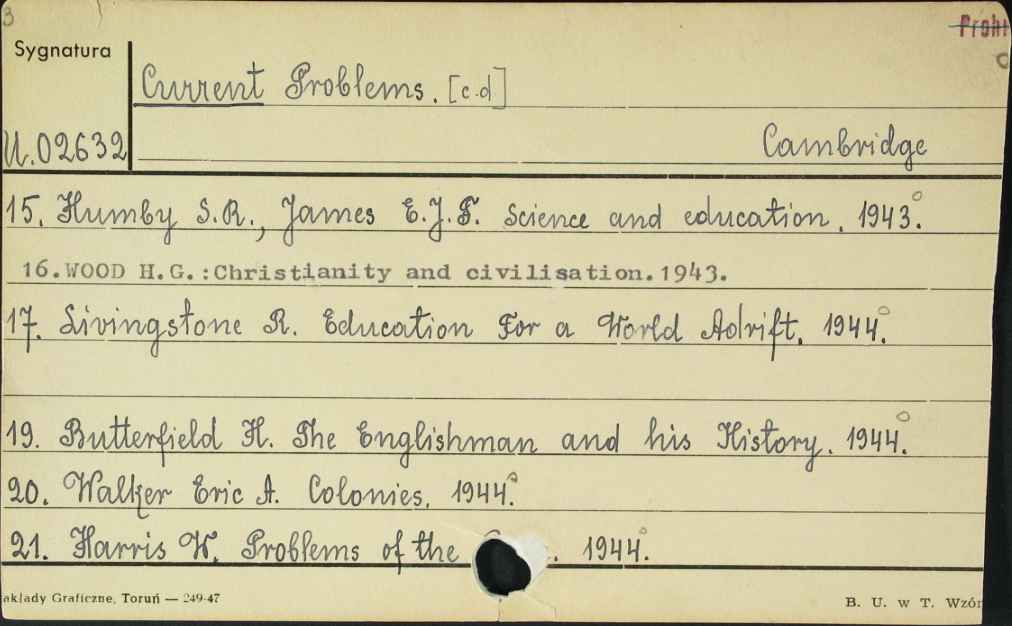 3
Sygnatura
Current Problems. [c.d]
U.02632
Cambridge
15. Humby S.R., James E.J.F. Science and education. 1943.°
16.WOOD H.G.:Christianity and civilisation.1943.
17. Livingstone R. Education For a World Adrift. 1944.°
19. Butterfield H. The Englishman and his History. 1944.°
20. Walker Eric A. Colonies. 1944.°
21. Harris W. Problems of the 1944.°
akłady Graficzne, Toruń — 249-47
B. U. w T. Wzór